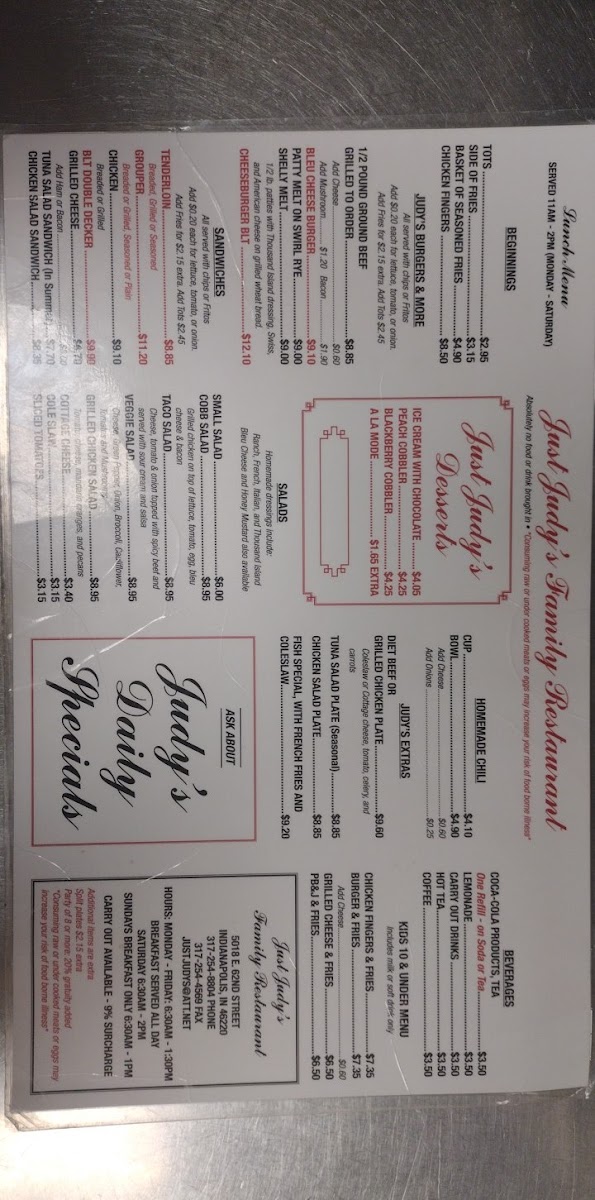 Just Judy's Family Restaurant
Absolutely no food or drink brought in • *Consuming raw or under cooked meats or eggs may increase your risk of food borne illness*
Lunch Menu
SERVED 11AM - 2PM (MONDAY - SATURDAY)
BEGINNINGS
TOTS $2.95
SIDE OF FRIES $3.15
BASKET OF SEASONED FRIES $4.90
CHICKEN FINGERS $8.50
JUDY'S BURGERS & MORE
All served with chips or Fritos
Add $0.20 each for lettuce, tomato, or onion.
Add Fries for $2.15 extra. Add Tots $2.45
1/2 POUND GROUND BEEF
GRILLED TO ORDER $8.85
Add Cheese $0.60
Add Mushroom $1.20 Bacon $1.90
BLEU CHEESE BURGER $9.10
PATTY MELT ON SWIRL RYE $9.00
SHELLY MELT $9.00
1/2 lb. patties with Thousand Island dressing, Swiss,
and American cheese on grilled wheat bread.
CHEESEBURGER BLT $12.10
SANDWICHES
All served with chips or Fritos
Add $0.20 each for lettuce, tomato, or onion.
Add Fries for $2.15 extra. Add Tots $2.45
TENDERLOIN $8.85
Breaded, Grilled or Seasoned
GROUPER $11.20
Breaded or Grilled, Seasoned or Plain
CHICKEN $9.10
Breaded or Grilled
BLT DOUBLE DECKER $9.90
GRILLED CHEESE $6.70
Add Ham or Bacon
TUNA SALAD SANDWICH (In Summer) $7.70
CHICKEN SALAD SANDWICH $8.35
Just Judy's
Desserts
ICE CREAM WITH CHOCOLATE $4.05
PEACH COBBLER $4.25
BLACKBERRY COBBLER $4.25
A LA MODE $1.65 EXTRA
SALADS
Homemade dressings include:
Ranch, French, Italian, and Thousand Island
Bleu Cheese and Honey Mustard also available
SMALL SALAD $6.00
COBB SALAD $8.95
Grilled chicken on top of lettuce, tomato, egg, bleu
cheese & bacon
TACO SALAD $8.95
Cheese, tomato & onion topped with spicy beef and
served with sour cream and salsa
VEGGIE SALAD $8.95
Cheese, Green Pepper, Onion, Broccoli, Cauliflower,
Tomato and Mushrooms
GRILLED CHICKEN SALAD $8.95
Tomato, cheese, mandarin oranges, and pecans
COTTAGE CHEESE $3.40
COLE SLAW $3.15
SLICED TOMATOES $3.15
HOMEMADE CHILI
CUP $4.10
BOWL $4.90
Add Cheese $0.60
Add Onions $0.25
JUDY'S EXTRAS
DIET BEEF OR
GRILLED CHICKEN PLATE $9.60
Coleslaw or Cottage cheese, tomato, celery, and
carrots
TUNA SALAD PLATE (Seasonal) $8.85
CHICKEN SALAD PLATE $8.85
FISH SPECIAL, WITH FRENCH FRIES AND
COLESLAW $9.20
ASK ABOUT
Judy's
Daily
Specials
BEVERAGES
COCA-COLA PRODUCTS, TEA
One Refill - on Soda or Tea $3.50
LEMONADE $3.50
CARRY OUT DRINKS $3.50
HOT TEA $3.50
COFFEE $3.50
KIDS 10 & UNDER MENU
Includes milk or soft drink only
CHICKEN FINGERS & FRIES $7.35
BURGER & FRIES $7.35
Add Cheese $0.60
GRILLED CHEESE & FRIES $6.50
PB&J & FRIES $6.50
Just Judy's
Family Restaurant
5018 E 62ND STREET
INDIANAPOLIS, IN 46220
317-254-8804 PHONE
317-254-4569 FAX
JUST.JUDYS@ATT.NET
HOURS: MONDAY - FRIDAY: 6:30AM - 1:30PM
BREAKFAST SERVED ALL DAY
SATURDAY 6:30AM - 2PM
SUNDAYS BREAKFAST ONLY 6:30AM - 1PM
CARRY OUT AVAILABLE - 9% SURCHARGE
Additional items are extra
Split plates $2.15 extra
Party of 8 or more: 20% gratuity added
*Consuming raw or under cooked meats or eggs may
increase your risk of food borne illness*